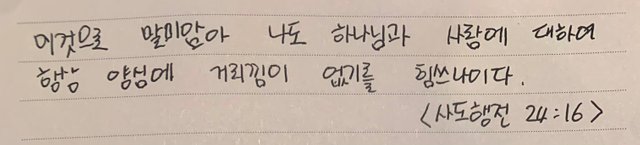 이것으로 말미암아 나도 하나님과 사람에 대하여
항상 양심에 거리낌이 없기를 힘쓰나이다.
<사도행전 24:16>